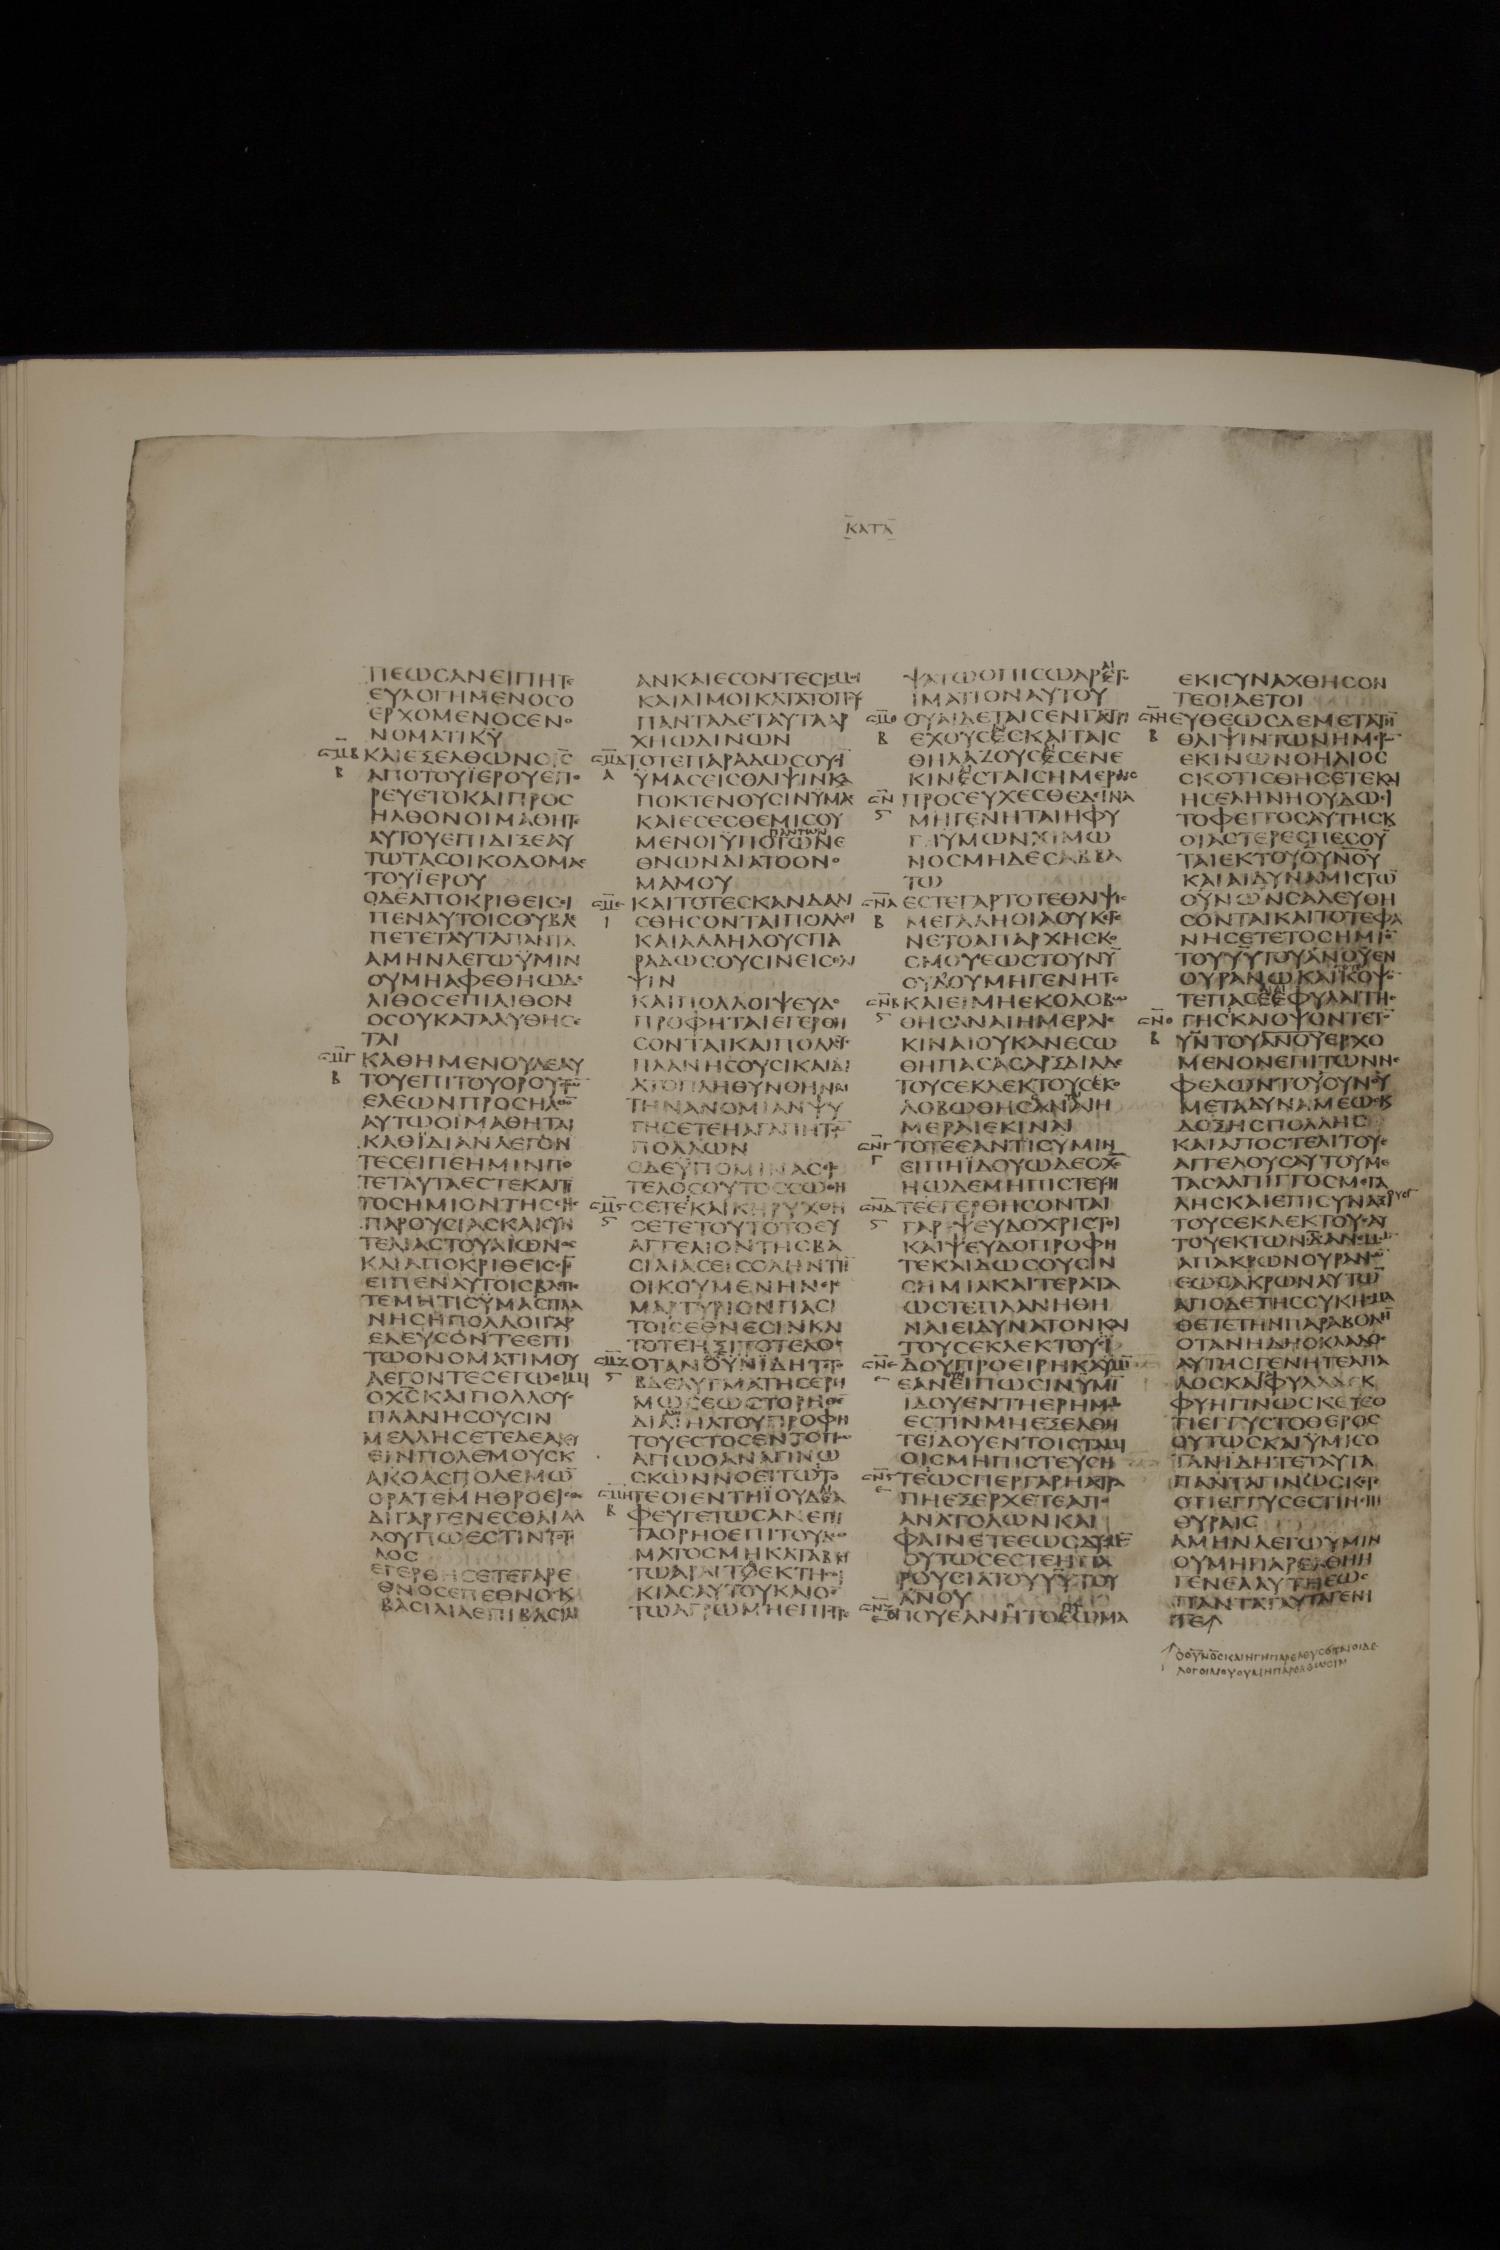 ΚΑΤΑ
ΠΕΩϹΑΝΕΙΠΗΤΕ
ΕΥΛΟΓΗΜΕΝΟϹΟ
ΕΡΧΟΜΕΝΟϹΕΝΟ
ΝΟΜΑΤΙΚΥ
ϹΜΒ ΚΑΙΕΞΕΛΘΩΝΟΙϹ
Β ΑΠΟΤΟΥΪΕΡΟΥΕΠΟ
ΡΕΥΕΤΟΚΑΙΠΡΟϹ
ΗΛΘΟΝΟΙΜΑΘΗΤΕ
ΑΥΤΟΥΕΠΙΔΙΞΕΑΥ
ΤΩΤΑϹΟΙΚΟΔΟΜΑϹ
ΤΟΥΪΕΡΟΥ
ΟΔΕΑΠΟΚΡΙΘΕΙϹΕΙ
ΠΕΝΑΥΤΟΙϹΟΥΒΛΕ
ΠΕΤΕΤΑΥΤΑΠΑΝΤΑ
ΑΜΗΝΛΕΓΩΫΜΙΝ
ΟΥΜΗΑΦΕΘΗΩΔΕ
ΛΙΘΟϹΕΠΙΛΙΘΟΝ
ΟϹΟΥΚΑΤΑΛΥΘΗϹΕ
ΤΑΙ
ϹΜΓ ΚΑΘΗΜΕΝΟΥΔΕΑΥ
Β ΤΟΥΕΠΙΤΟΥΟΡΟΥϹΤΩ
ΕΛΕΩΝΠΡΟϹΗΛΘΟ
ΑΥΤΩΟΙΜΑΘΗΤΑΙ
ΚΑΘΪΔΙΑΝΛΕΓΟΝ
ΤΕϹΕΙΠΕΗΜΙΝΠΟ
ΤΕΤΑΥΤΑΕϹΤΕΚΑΙΤΙ
ΤΟϹΗΜΙΟΝΤΗϹϹΗϹ
ΠΑΡΟΥϹΙΑϹΚΑΙϹΥΝ
ΤΕΛΙΑϹΤΟΥΑΙΩΝΟϹ
ΚΑΙΑΠΟΚΡΙΘΕΙϹΟΙϹ
ΕΙΠΕΝΑΥΤΟΙϹΒΛΕΠΕ
ΤΕΜΗΤΙϹΫΜΑϹΠΛΑ
ΝΗϹΗΠΟΛΛΟΙΓΑΡ
ΕΛΕΥϹΟΝΤΕΕΠΙ
ΤΩΟΝΟΜΑΤΙΜΟΥ
ΛΕΓΟΝΤΕϹΕΓΩΕΙΜΙ
ΟΧϹΚΑΙΠΟΛΛΟΥϹ
ΠΛΑΝΗϹΟΥϹΙΝ
ΜΕΛΛΗϹΕΤΕΔΕΑΚΟΥ
ΕΙΝΠΟΛΕΜΟΥϹΚ
ΑΚΟΑϹΠΟΛΕΜΩ
ΟΡΑΤΕΜΗΘΡΟΕΙϹΘΕ
ΔΙΓΑΡΓΕΝΕϹΘΑΙΑΛ
ΛΟΥΠΩΕϹΤΙΝΤΟΤΕ
ΛΟϹ
ΕΓΕΡΘΗϹΕΤΕΓΑΡΕ
ΘΝΟϹΕΠΕΘΝΟϹΚ
ΒΑϹΙΛΙΑΕΠΙΒΑϹΙΛΙ
ΑΝΚΑΙΕϹΟΝΤΕϹΙϹΜΟΙ
ΚΑΙΛΙΜΟΙΚΑΤΑΤΟΠΟΥϹ
ΠΑΝΤΑΔΕΤΑΥΤΑΑΡ
ΧΗΩΔΙΝΩΝ
ϹΜΔ ΤΟΤΕΠΑΡΑΔΩϹΟΥϹΙ
Α ΫΜΑϹΕΙϹΘΛΙΨΙΝΚΑΙΑ
ΠΟΚΤΕΝΟΥϹΙΝΫΜΑϹ
ΚΑΙΕϹΕϹΘΕΜΙϹΟΥ
ΜΕΝΟΙΫΠΟΠΑΝΤΩΝΤΩΝΕ
ΘΝΩΝΔΙΑΤΟΟΝΟ
ΜΑΜΟΥ
ϹΜΕ ΚΑΙΤΟΤΕϹΚΑΝΔΑΛΙ
Ι ϹΘΗϹΟΝΤΑΙΠΟΛΛΟΙ
ΚΑΙΑΛΛΗΛΟΥϹΠΑ
ΡΑΔΩϹΟΥϹΙΝΕΙϹΘΛΙ
ΨΙΝ
ΚΑΙΠΟΛΛΟΙΨΕΥΔΟ
ΠΡΟΦΗΤΑΙΕΓΕΡΘΗ
ϹΟΝΤΑΙΚΑΙΠΟΛΛΟΥϹ
ΠΛΑΝΗϹΟΥϹΙΚΑΙΔΙ
ΑΤΟΠΛΗΘΥΝΘΗΝΑΙ
ΤΗΝΑΝΟΜΙΑΝΨΥ
ΓΗϹΕΤΕΗΑΓΑΠΗΤΩ
ΠΟΛΛΩΝ
ΟΔΕΫΠΟΜΙΝΑϹΕΙϹ
ΤΕΛΟϹΟΥΤΟϹϹΩΘΗ
ϹΜϚ ϹΕΤΕΚΑΙΚΗΡΥΧΘΗ
Ϛ ϹΕΤΕΤΟΥΤΟΤΟΕΥ
ΑΓΓΕΛΙΟΝΤΗϹΒΑ
ϹΙΛΙΑϹΕΙϹΟΛΗΝΤΗ
ΟΙΚΟΥΜΕΝΗΝΕΙϹ
ΜΑΡΤΥΡΙΟΝΠΑϹΙ
ΤΟΙϹΕΘΝΕϹΙΝΚΑΙ
ΤΟΤΕΗΞΙΤΟΤΕΛΟϹ
ϹΜΖ ΟΤΑΝΟΥΝΪΔΗΤΕΤΟ
Ϛ ΒΔΕΛΥΓΜΑΤΗϹΕΡΗ
ΜΩϹΕΩϹΤΟΡΗΘΕ
ΔΙΑΔΑΝΙΗΛΤΟΥΠΡΟΦΗ
ΤΟΥΕϹΤΟϹΕΝΤΟΠΩ
ΑΓΙΩΟΑΝΑΓΙΝΩ
ϹΚΩΝΝΟΕΙΤΩΤΟ
ϹΜΗ ΤΕΟΙΕΝΤΗΪΟΥΔΑΙΑ
Β ΦΕΥΓΕΤΩϹΑΝΕΠΙ
ΤΑΟΡΗΟΕΠΙΤΟΥΔΩ
ΜΑΤΟϹΜΗΚΑΤΑΒΗ
ΤΩΑΡΑΙΤΟΕΚΤΗϹΟΙ
ΚΙΑϹΑΥΤΟΥΚΑΙΟΕ
ΤΩΑΓΡΩΜΗΕΠΙϹΤΡΕ
ΨΑΤΩΟΠΙϹΩΑΡΑΙΤΟ
ΙΜΑΤΙΟΝΑΥΤΟΥ
ϹΜΘ ΟΥΑΙΔΕΤΑΙϹΕΝΓΑϹΤΡΙ
Β ΕΧΟΥϹΕϹΚΑΙΤΑΙϹ
ΘΗΛΑΖΟΥϹΕϹΕΝΕ
ΚΙΝΕϹΤΑΙϹΗΜΕΡΑΙϹ
ϹΝ ΠΡΟϹΕΥΧΕϹΘΕΔΕΪΝΑ
Ϛ ΜΗΓΕΝΗΤΑΙΗΦΥ
ΓΗΫΜΩΝΧΙΜΩ
ΝΟϹΜΗΔΕϹΑΒΒΑ
ΤΩ
ϹΝΑ ΕϹΤΕΓΑΡΤΟΤΕΘΛΙΨΙϹ
Β ΜΕΓΑΛΗΟΙΑΟΥΚΕΓΕ
ΝΕΤΟΑΠΑΡΧΗϹΚΟ
ϹΜΟΥΕΩϹΤΟΥΝΥ
ΟΥΔΟΥΜΗΓΕΝΗΤΕ
ϹΝΒ ΚΑΙΕΙΜΗΕΚΟΛΟΒΩ
Ϛ ΘΗϹΑΝΑΙΗΜΕΡΑΙΕ
ΚΙΝΑΙΟΥΚΑΝΕϹΩ
ΘΗΠΑϹΑϹΑΡΞΔΙΑΔΕ
ΤΟΥϹΕΚΛΕΚΤΟΥϹΕΚΟ
ΛΟΒΩΘΗϹΑΝΑΙΗ
ΜΕΡΑΙΕΚΙΝΑΙ
ϹΝΓ ΤΟΤΕΕΑΝΤΙϹΥΜΙΝ
Γ ΕΙΠΗΪΔΟΥΩΔΕΟΧϹ
ΗΩΔΕΜΗΠΙϹΤΕΥϹΗ
ϹΝΔ ΤΕΕΓΕΡΘΗϹΟΝΤΑΙ
Ϛ ΓΑΡΨΕΥΔΟΧΡΙϹΤΟΙ
ΚΑΙΨΕΥΔΟΠΡΟΦΗ
ΤΕΚΑΙΔΩϹΟΥϹΙΝ
ϹΗΜΙΑΚΑΙΤΕΡΑΤΑ
ΩϹΤΕΠΛΑΝΗΘΗ
ΝΑΙΕΙΔΥΝΑΤΟΝΚΑΙ
ΤΟΥϹΕΚΛΕΚΤΟΥϹΪ
ϹΝΕ ΔΟΥΠΡΟΕΙΡΗΚΑΫΜΙ
ΕΑΝΟΥΝΕΙΠΩϹΙΝΫΜΙ
ΙΔΟΥΕΝΤΗΕΡΗΜΩ
ΕϹΤΙΝΜΗΕΞΕΛΘΗ
ΤΕΪΔΟΥΕΝΤΟΙϹΤΑΜΙ
ΟΙϹΜΗΠΙϹΤΕΥϹΗ
ϹΝϚ ΤΕΩϹΠΕΡΓΑΡΗΑϹΤΡΑ
Ε ΠΗΕΞΕΡΧΕΤΕΑΠΟ
ΑΝΑΤΟΛΩΝΚΑΙ
ΦΑΙΝΕΤΕΕΩϹΔΥϹΜΩ
ΟΥΤΩϹΕϹΤΕΗΠΑ
ΡΟΥϹΙΑΤΟΥΥΥΤΟΥ
ΑΝΟΥ
ϹΝΖ ΟΠΟΥΕΑΝΗΤΟΠΤΩΜΑ
ΕΚΙϹΥΝΑΧΘΗϹΟΝ
ΤΕΟΙΑΕΤΟΙ
ϹΝΗ ΕΥΘΕΩϹΔΕΜΕΤΑΤΗ
Β ΘΛΙΨΙΝΤΩΝΗΜΕΡΩ
ΕΚΙΝΩΝΟΗΛΙΟϹ
ϹΚΟΤΙϹΘΗϹΕΤΕΚΑΙ
ΗϹΕΛΗΝΗΟΥΔΩϹΙ
ΤΟΦΕΓΓΟϹΑΥΤΗϹΚ
ΟΙΑϹΤΕΡΕϹΠΕϹΟΥ
ΤΑΙΕΚΤΟΥΟΥΝΟΥ
ΚΑΙΑΙΔΥΝΑΜΙϹΤΩ
ΟΥΝΩΝϹΑΛΕΥΘΗ
ϹΟΝΤΑΙΚΑΙΤΟΤΕΦΑ
ΝΗϹΕΤΕΤΟϹΗΜΙΟ
ΤΟΥΥΥΤΟΥΑΝΟΥΕΝ
ΟΥΡΑΝΩΚΑΙΚΟΨΟ
ΤΕΠΑϹΕΕΦΥΛΑΙΤΗϹ
ϹΝΘ ΓΗϹΚΑΙΟΨΟΝΤΕΤΟ
Β ΥΝΤΟΥΑΝΟΥΕΡΧΟ
ΜΕΝΟΝΕΠΙΤΩΝΝΕ
ΦΕΛΩΝΤΟΥΟΥΝΟΥ
ΜΕΤΑΔΥΝΑΜΕΩϹΚ
ΔΟΞΗϹΠΟΛΛΗϹ
ΚΑΙΑΠΟϹΤΕΛΙΤΟΥϹ
ΑΓΓΕΛΟΥϹΑΥΤΟΥΜΕ
ΤΑϹΑΛΠΙΓΓΟϹΜΕΓΑ
ΛΗϹΚΑΙΕΠΙϹΥΝΑΞΟΥϹΙ
ΤΟΥϹΕΚΛΕΚΤΟΥϹΑΥ
ΤΟΥΕΚΤΩΝΔΑΝΕΜΩ
ΑΠΑΚΡΩΝΟΥΡΑΝΩ
ΕΩϹΑΚΡΩΝΑΥΤΩ
ΑΠΟΔΕΤΗϹϹΥΚΗϹΜΑ
ΘΕΤΕΤΗΝΠΑΡΑΒΟΛΗ
ΟΤΑΝΗΔΗΟΚΛΑΔΟϹ
ΑΥΤΗϹΓΕΝΗΤΕΑΠΑ
ΛΟϹΚΑΙΤΑΦΥΛΛΑΕΚ
ΦΥΗΓΙΝΩϹΚΕΤΕΟ
ΤΙΕΓΓΥϹΤΟΘΕΡΟϹ
ΟΥΤΩϹΚΑΙΫΜΙϹΟ
ΤΑΝΙΔΗΤΕΤΑΥΤΑ
ΠΑΝΤΑΓΙΝΩϹΚΕΤΕ
ΟΤΙΕΓΓΥϹΕϹΤΙΝΕΠΙ
ΘΥΡΑΙϹ
ΑΜΗΝΛΕΓΩΫΜΙΝ
ΟΥΜΗΠΑΡΕΛΘΗΗ
ΓΕΝΕΑΑΥΤΗΕΩϹ
ΠΑΝΤΑΤΑΥΤΑΓΕΝΗ
ΤΕ
ΟΟΥΝΟϹΚΑΙΗΓΗΠΑΡΕΛΕΥϹΟΝΤΑΙΟΙΔΕ
ΛΟΓΟΙΜΟΥΟΥΜΗΠΑΡΕΛΘΩϹΙΝ